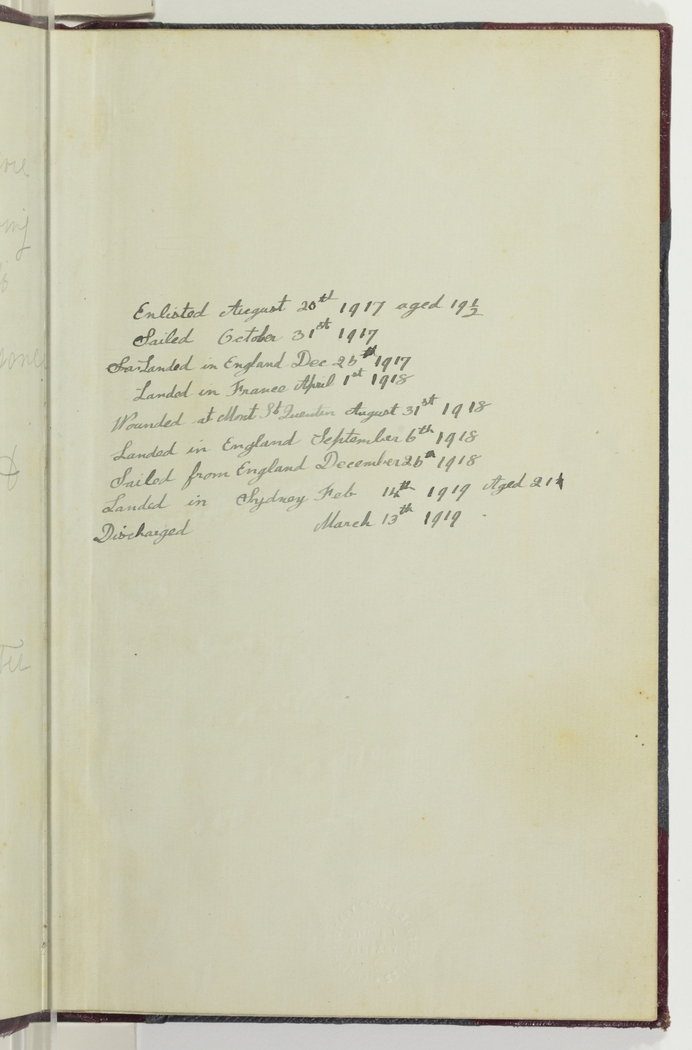 Enlisted August 20th 1917 aged 19½
Sailed October 31st 1917
Landed in England Dec 26th 1917
Landed in France April 1st 1918
Wounded at Mont St Quentin August 31st 1918
Landed in England September 6th 1918
Sailed from England December 26th 1918
Landed in Sydney Feb 14th 1919 Aged 21
Discharged March 13th 1919